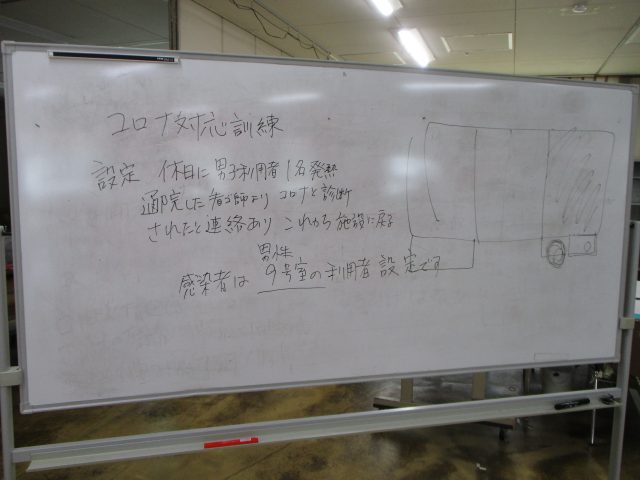 コロナ対応訓練
設定 休日に男子利用者1名発熱
通院した看護師より コロナと診断
されたと連絡あり これから施設に戻る
男性
感染者は 9号室の利用者 設定です